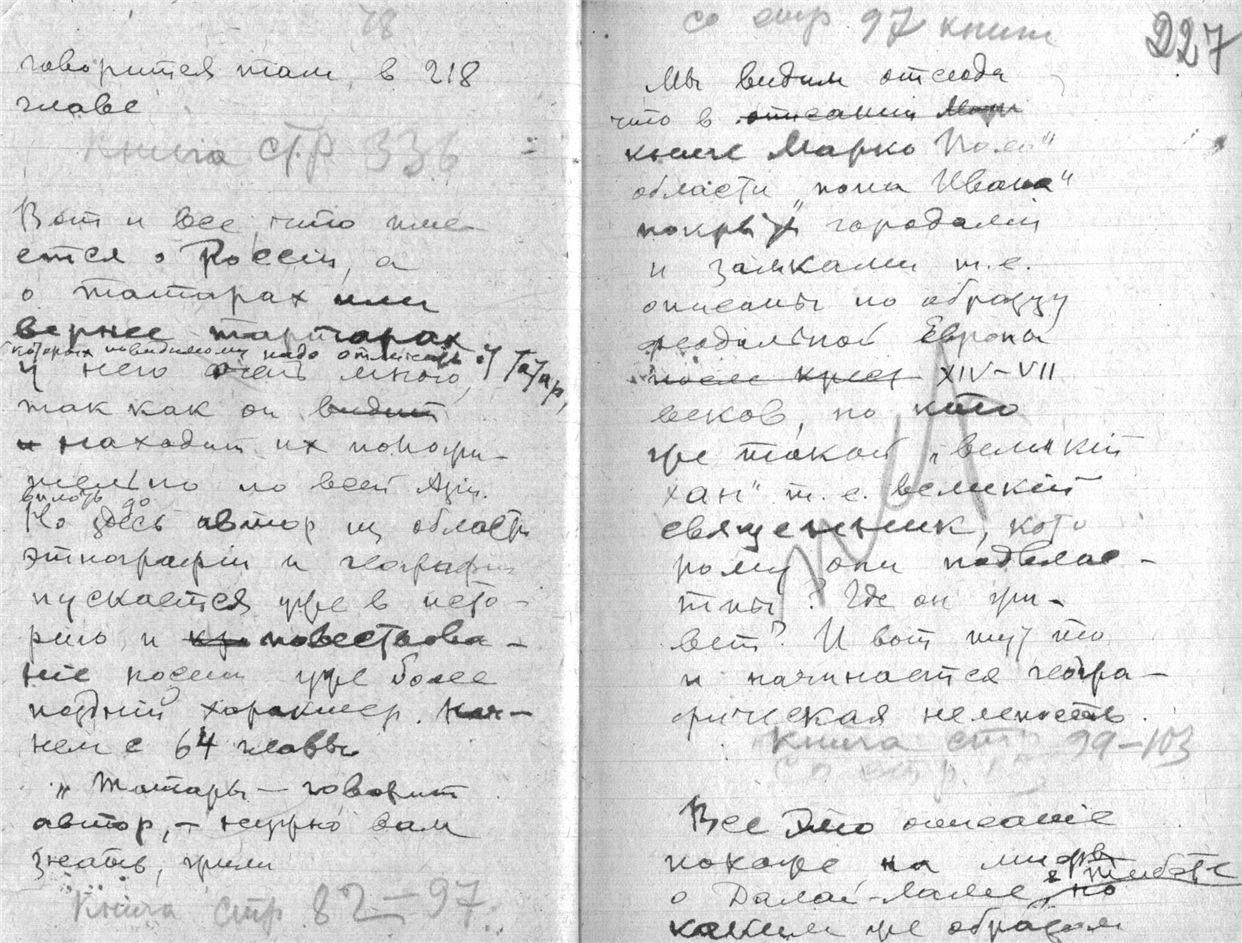 78
говорится там, в 218
главе
Книга стр 336
Вот и все, что име-
ется о Россіи, а
о татарах или
вернее тартарах
которых повидимому надо отличать от татар,
у него очень много,
так как он видит
и находит их положи-
тельно по всей Азіи.
вплоть до
Но здесь автор из области
этнографіи и географіи
пускается уже в исто-
рію, и повествова-
ніе носит уже более
поздній характер. Нач-
нем с 64 главы
„Татары — говорит
автор, — нужно вам
знать, жили
Книга стр 82–97.
со стр 97 книги
227
Мы видим отсюда
что в описании Мар
книге Марко Поло"
области „попа Ивана"
покрыты городами
и замками т.е.
описаны по образцу
феодальной Европы
после крест XIV–VII
веков, но кто
же такой „великій
хан" т.е. великій
священник, кото
рому они подвлас-
тны? Где он жи-
вет? И вот тут то
и начинается геогра-
фическая нелепость.
Книга стр 99–103
со стр.
Все это описаніе
похоже на миф
о Далай-Ламе в Тибете но
каким же образом